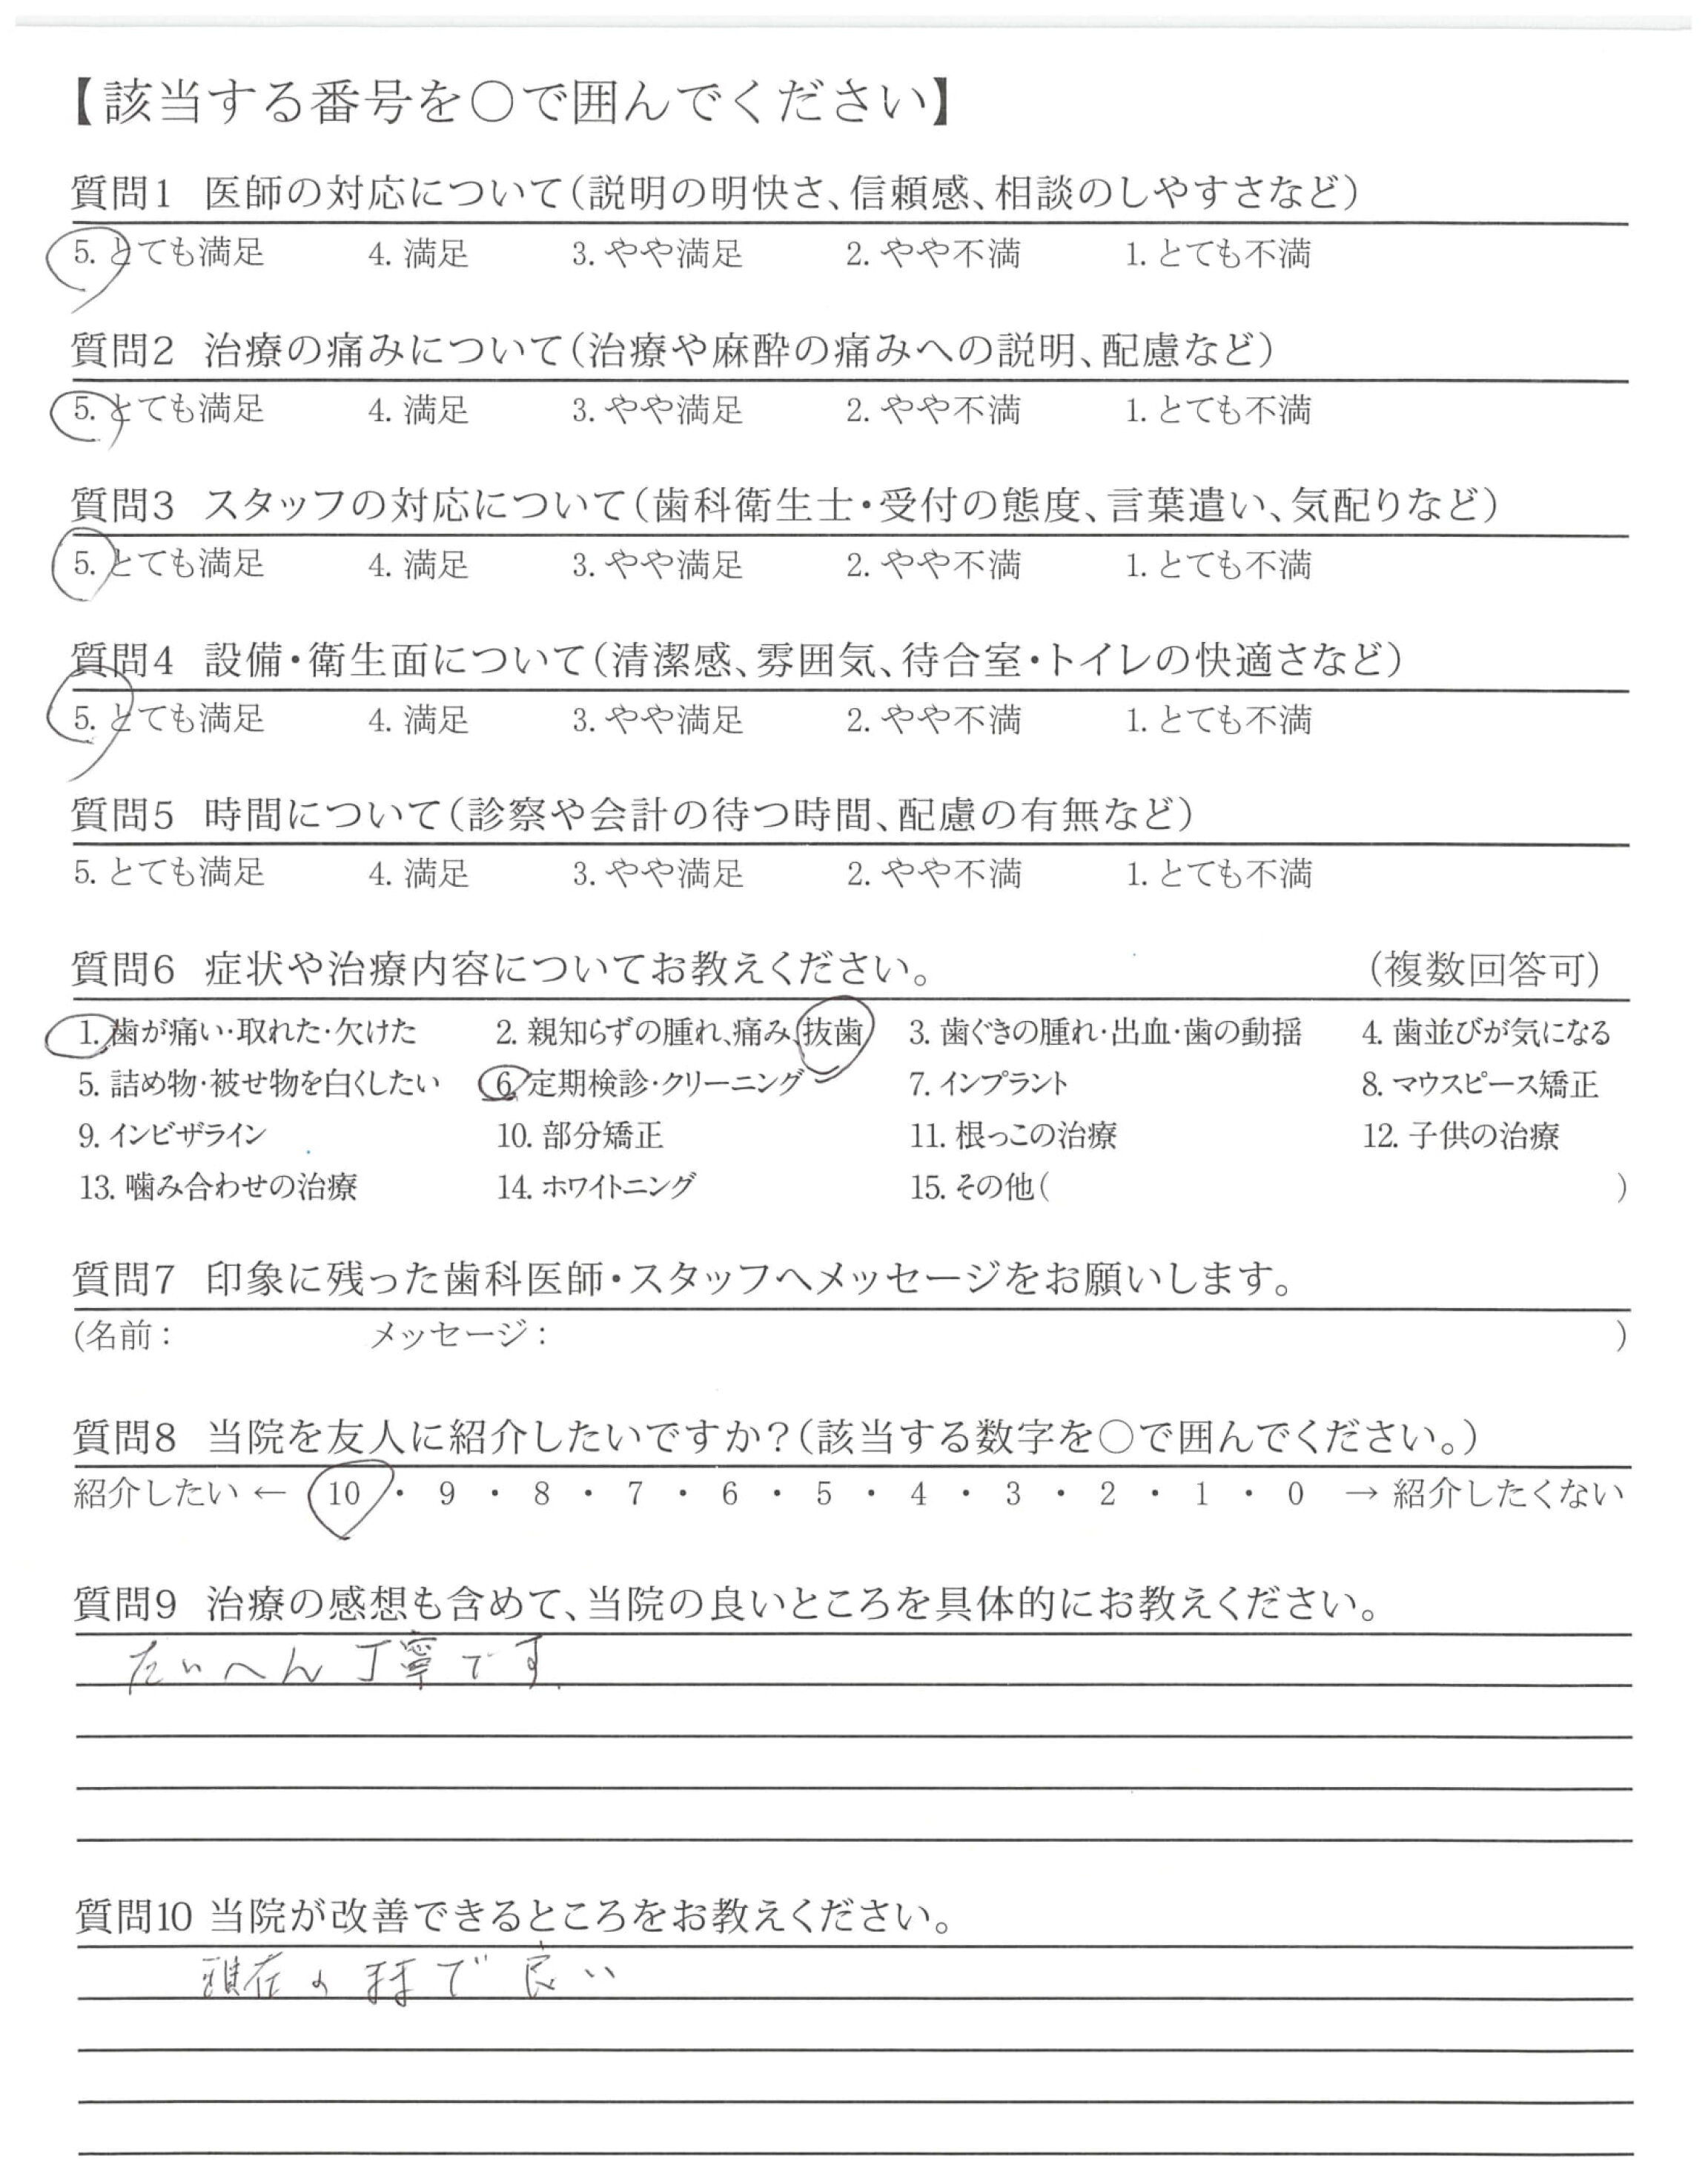 【該当する番号を○で囲んでください】
質問1 医師の対応について（説明の明快さ、信頼感、相談のしやすさなど）
5. とても満足 4. 満足 3. やや満足 2. やや不満 1. とても不満
質問2 治療の痛みについて（治療や麻酔の痛みへの説明、配慮など）
5. とても満足 4. 満足 3. やや満足 2. やや不満 1. とても不満
質問3 スタッフの対応について（歯科衛生士・受付の態度、言葉遣い、気配りなど）
5. とても満足 4. 満足 3. やや満足 2. やや不満 1. とても不満
質問4 設備・衛生面について（清潔感、雰囲気、待合室・トイレの快適さなど）
5. とても満足 4. 満足 3. やや満足 2. やや不満 1. とても不満
質問5 時間について（診察や会計の待つ時間、配慮の有無など）
5. とても満足 4. 満足 3. やや満足 2. やや不満 1. とても不満
質問6 症状や治療内容についてお教えください。 （複数回答可）
1. 歯が痛い・取れた・欠けた 2. 親知らずの腫れ、痛み、抜歯 3. 歯ぐきの腫れ・出血・歯の動揺 4. 歯並びが気になる
5. 詰め物・被せ物を白くしたい 6. 定期検診・クリーニング 7. インプラント 8. マウスピース矯正
9. インビザライン 10. 部分矯正 11. 根っこの治療 12. 子供の治療
13. 噛み合わせの治療 14. ホワイトニング 15. その他（ ）
質問7 印象に残った歯科医師・スタッフへメッセージをお願いします。
（名前： メッセージ： ）
質問8 当院を友人に紹介したいですか？（該当する数字を○で囲んでください。）
紹介したい ← 10 ・ 9 ・ 8 ・ 7 ・ 6 ・ 5 ・ 4 ・ 3 ・ 2 ・ 1 ・ 0 → 紹介したくない
質問9 治療の感想も含めて、当院の良いところを具体的にお教えください。
たいへん丁寧です
質問10 当院が改善できるところをお教えください。
現在の様で良い